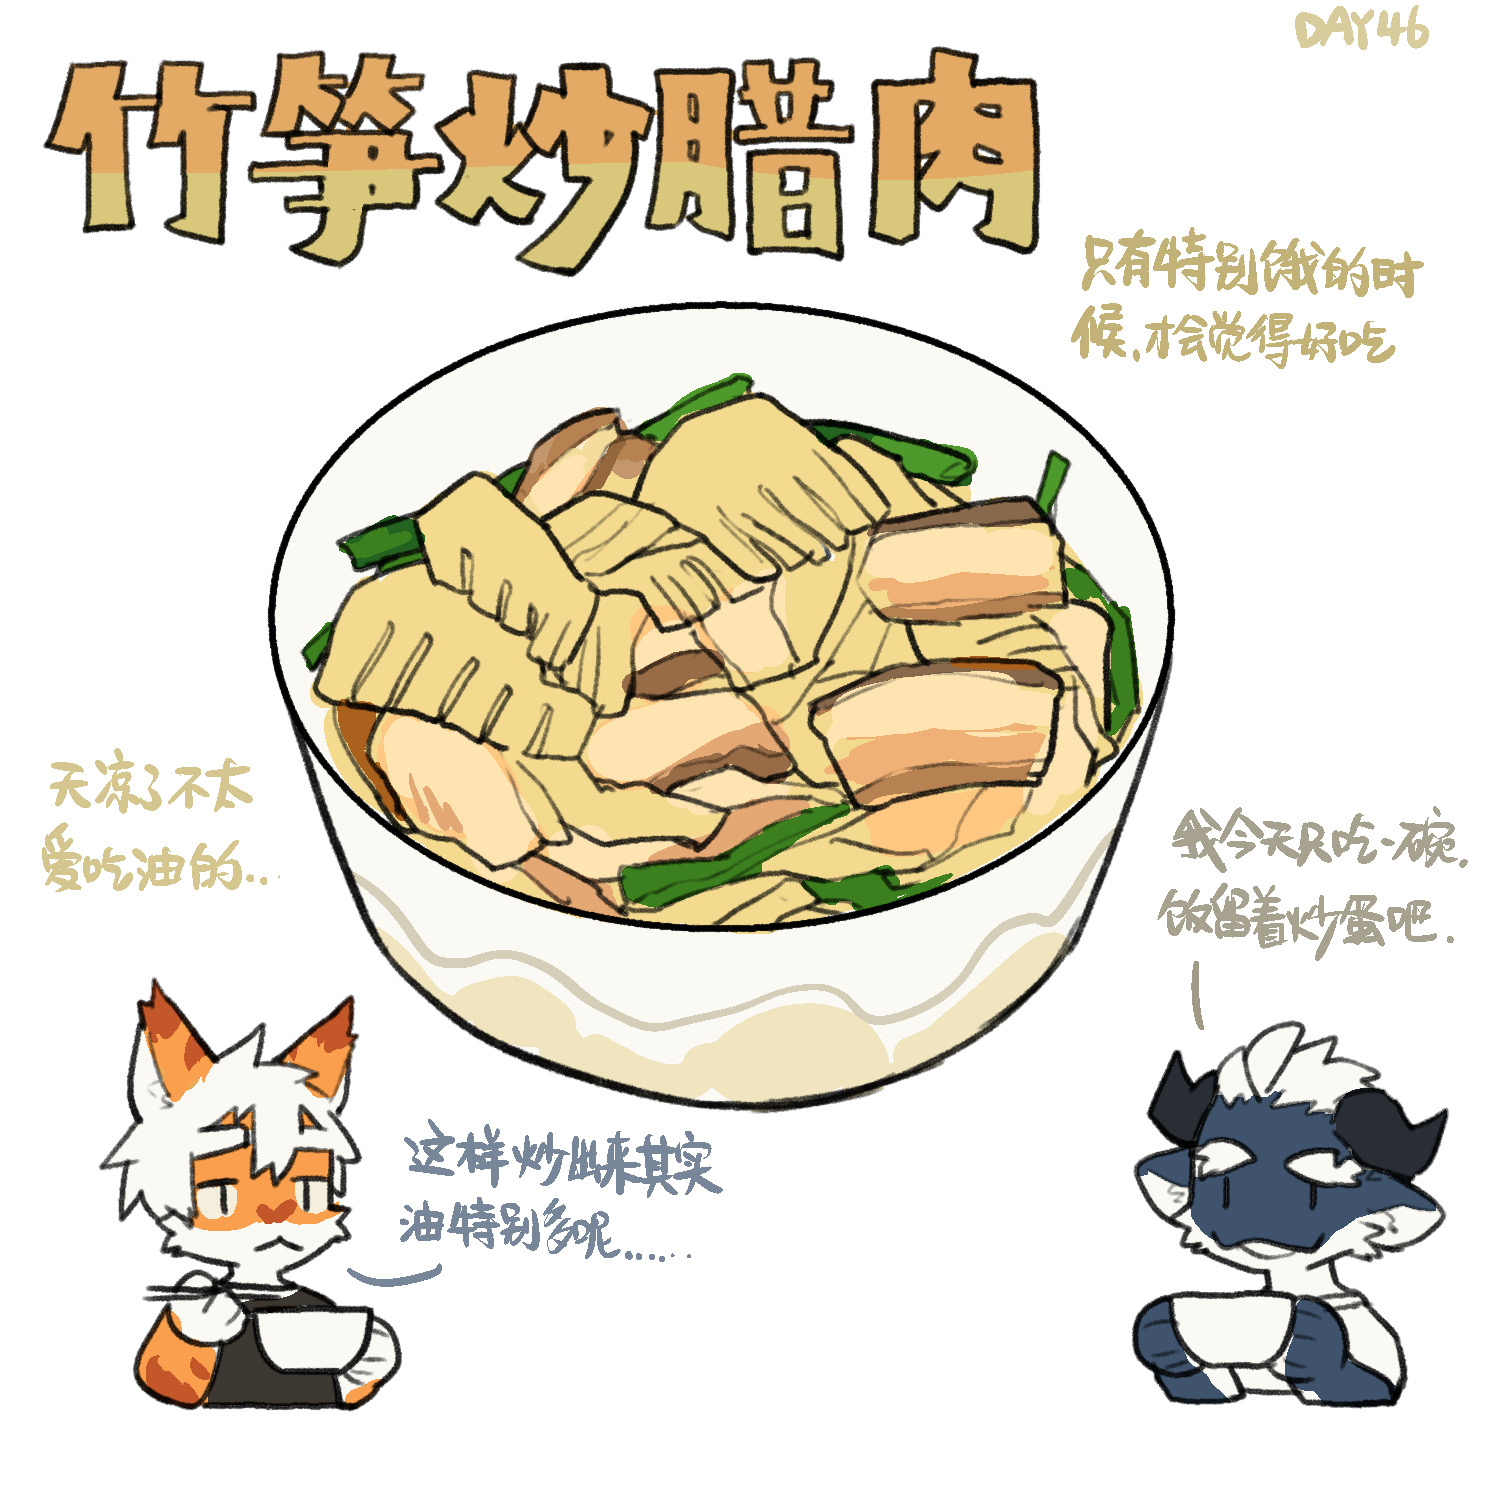 DAY46
竹笋炒腊肉
只有特别饿的时
候,才会觉得好吃
天凉了不太
爱吃油的...
我今天只吃一碗,
饭留着炒蛋吧.
这样炒出来其实
油特别多呢......